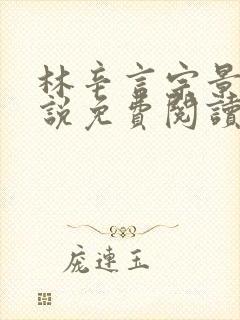 林辛言宗景
說免費閱讀
庞連玉